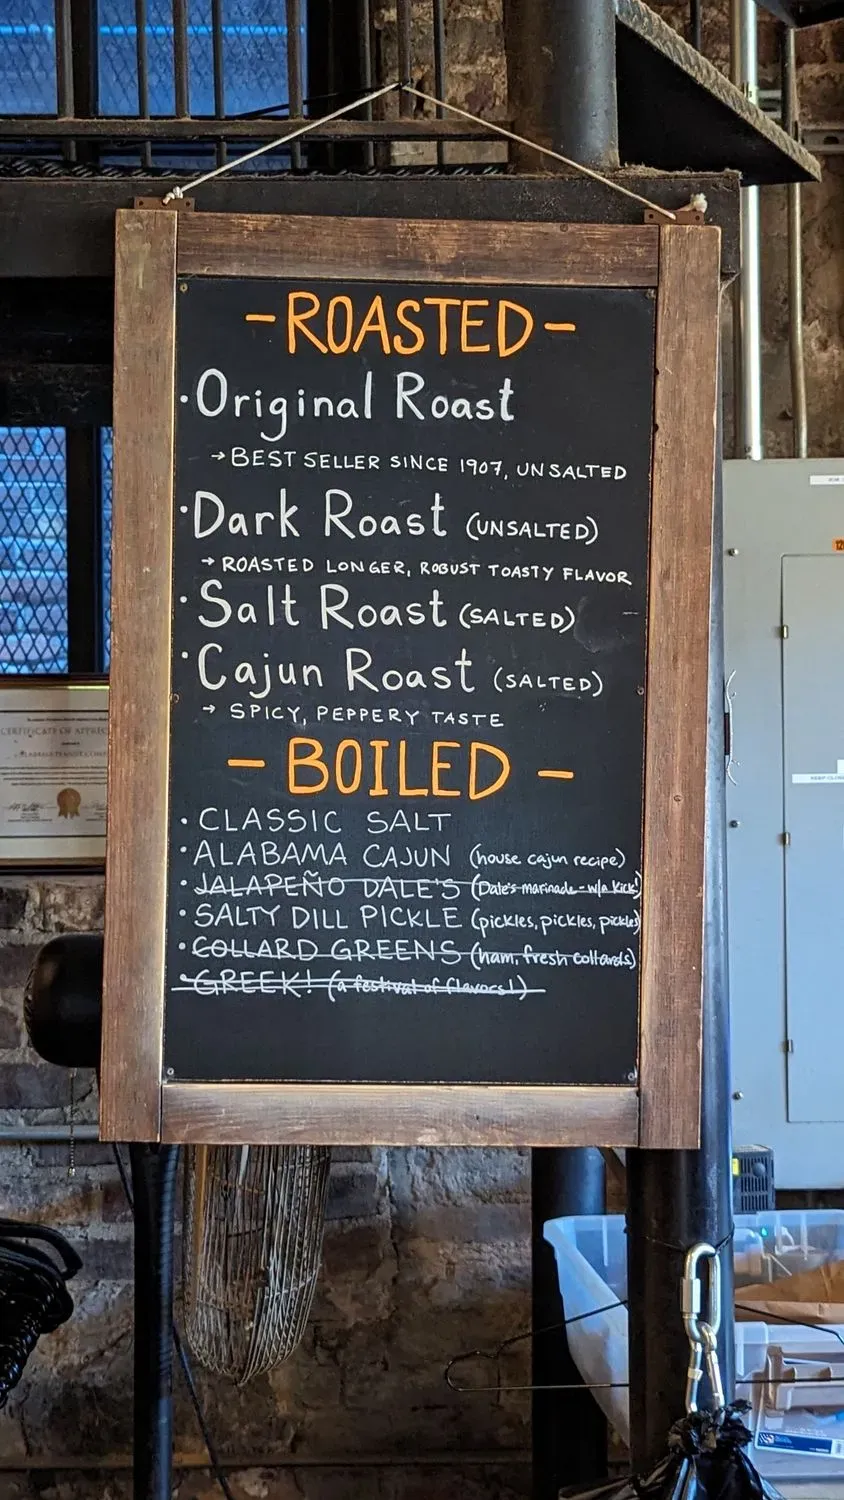 -ROASTED-
·Original Roast
→BEST SELLER SINCE 1907, UNSALTED
·Dark Roast (UNSALTED)
→ROASTED LONGER, ROBUST TOASTY FLAVOR
·Salt Roast (SALTED)
·Cajun Roast (SALTED)
→ SPICY, PEPPERY TASTE
-BOILED-
·CLASSIC SALT
·ALABAMA CAJUN (house cajun recipe)
·JALAPEÑO DALE'S (Dale's marinade - w/a kick!)
·SALTY DILL PICKLE (pickles, pickles, pickles)
·COLLARD GREENS (ham, fresh collards)
·GREEK! (a festival of flavors!)
CERTIFICATE OF APPREC